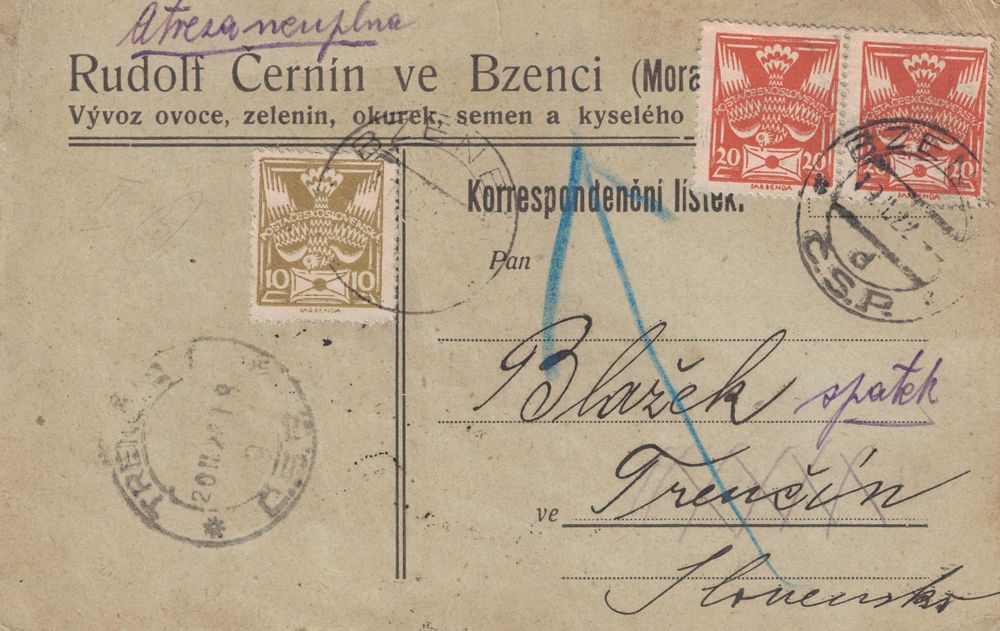 Atresa neuplna
Rudolf Černín ve Bzenci (Mora
Vývoz ovoce, zelenin, okurek, semen a kyselého
POŠTA ČESKOSLOVENSKÁ
20 20
POŠTA ČESKOSLOVENSKÁ
20 20
BZEN
22
d
Č.S.P.
POŠTA ČESKOSLOVENSKÁ
10 10
JAR.BENDA
JAR.BENDA
BZENE
Korrespondenční lístek.
Pan
Blažek spatek
ve Trenčín
Slovensko
TREN
20 II